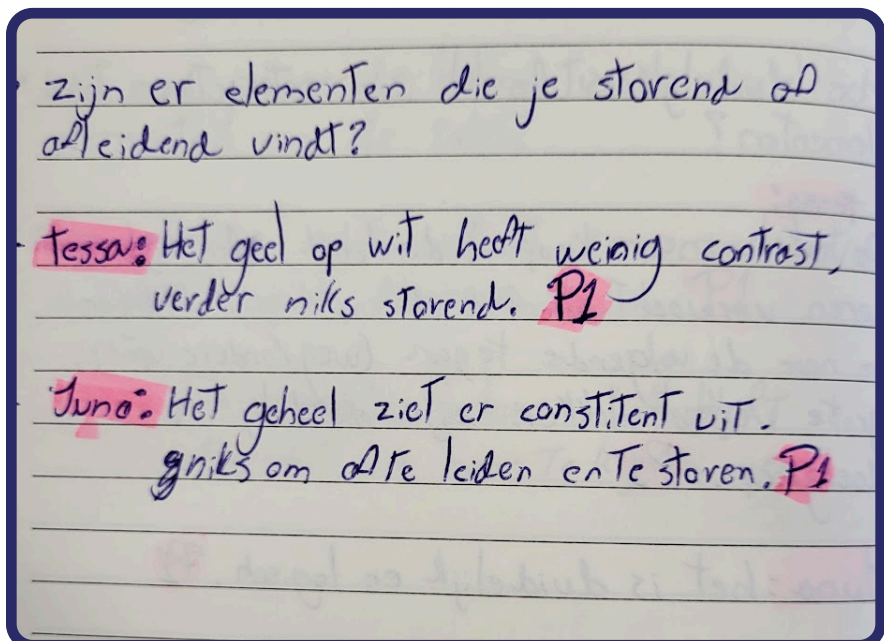 zijn er elementen die je storend of
afleidend vindt?
Tessa: Het geel op wit heeft weinig contrast,
verder niks storend. P1
Juno: Het geheel ziet er constitent uit.
niks om af te leiden en te storen. P1